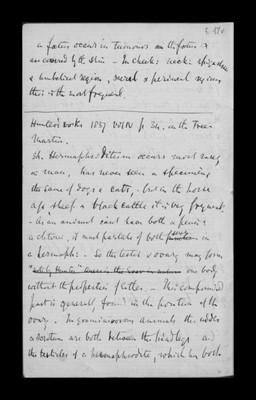 a foetus occurs in tumours on the foetus &
are covered by the skin – In cheek: neck:
& umbilical region, sacral & perineal regions
this is the most frequent.
Hunter's works 1837 Vol IV p 34, in the Free
Martin.
Sh. Hermaphroditism occurs most rarely
in man, has never seen a specimen,
the same of dogs & cats, – but in the horse
ass sheep & black cattle it is very frequent
– As an animal cannot have both a penis &
clitoris, it must partake of both in
hermaph: – So the testes & ovary may form
one body
without the properties of either. – This compound
part is generally found in the position of the
ovary. – In graminivorous animals the udder
& scrotum are both between the hind legs and
the testicles of a hermaphrodite, which has both